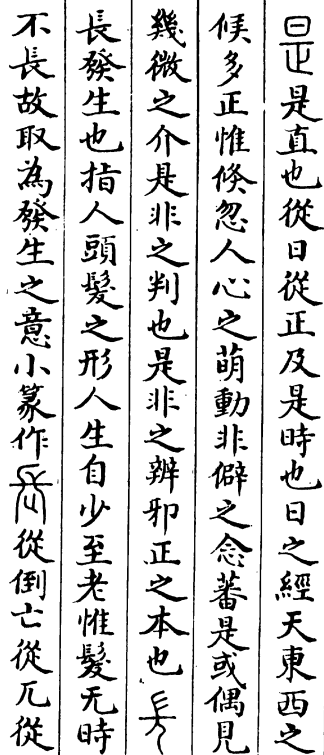 是是直也從日從正及是時也日之經天東西之
候多正惟倐忽人心之萌動非僻之念蕃是或偶見
幾微之介是非之判也是非之辨邪正之本也長
長發生也指人頭髮之形人生自少至老惟髮无時
不長故取為發生之意小篆作長從倒亡從兀從